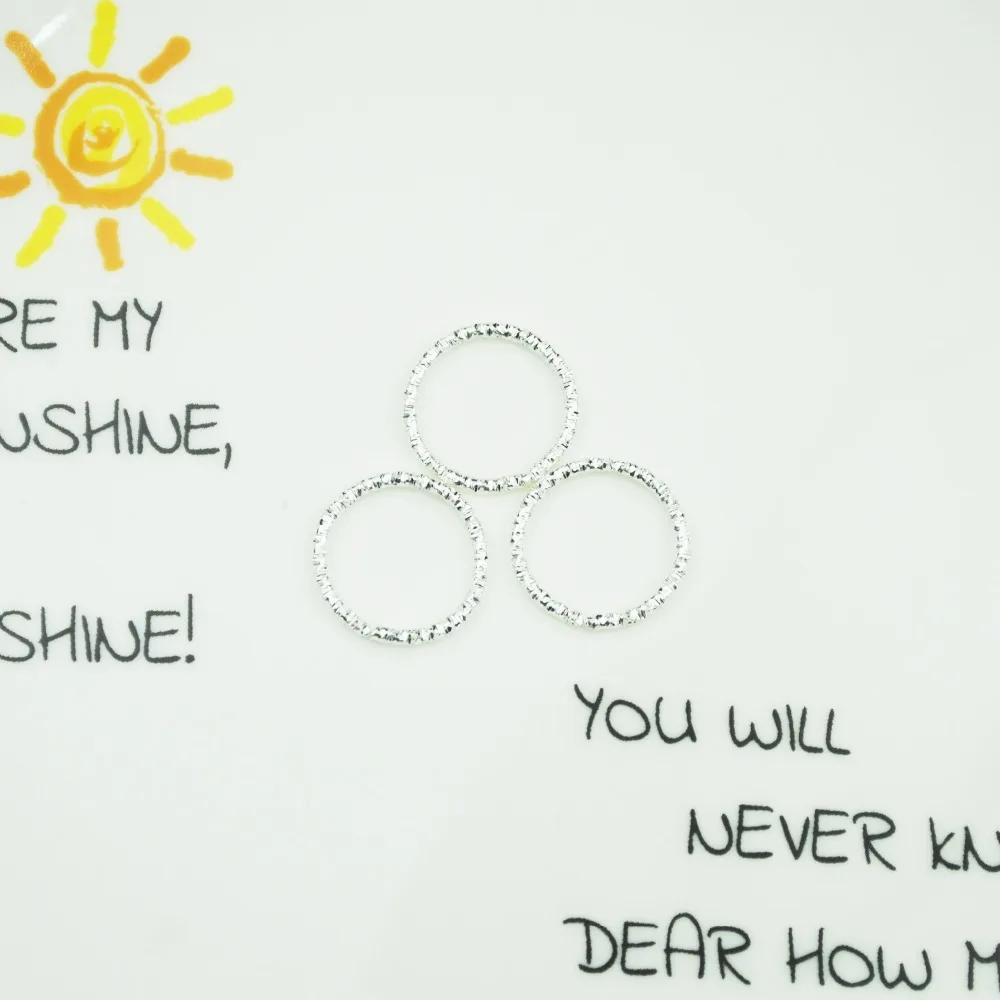 RE MY
NSHINE,
SHINE!
YOU WILL
NEVER KN
DEAR HOW M